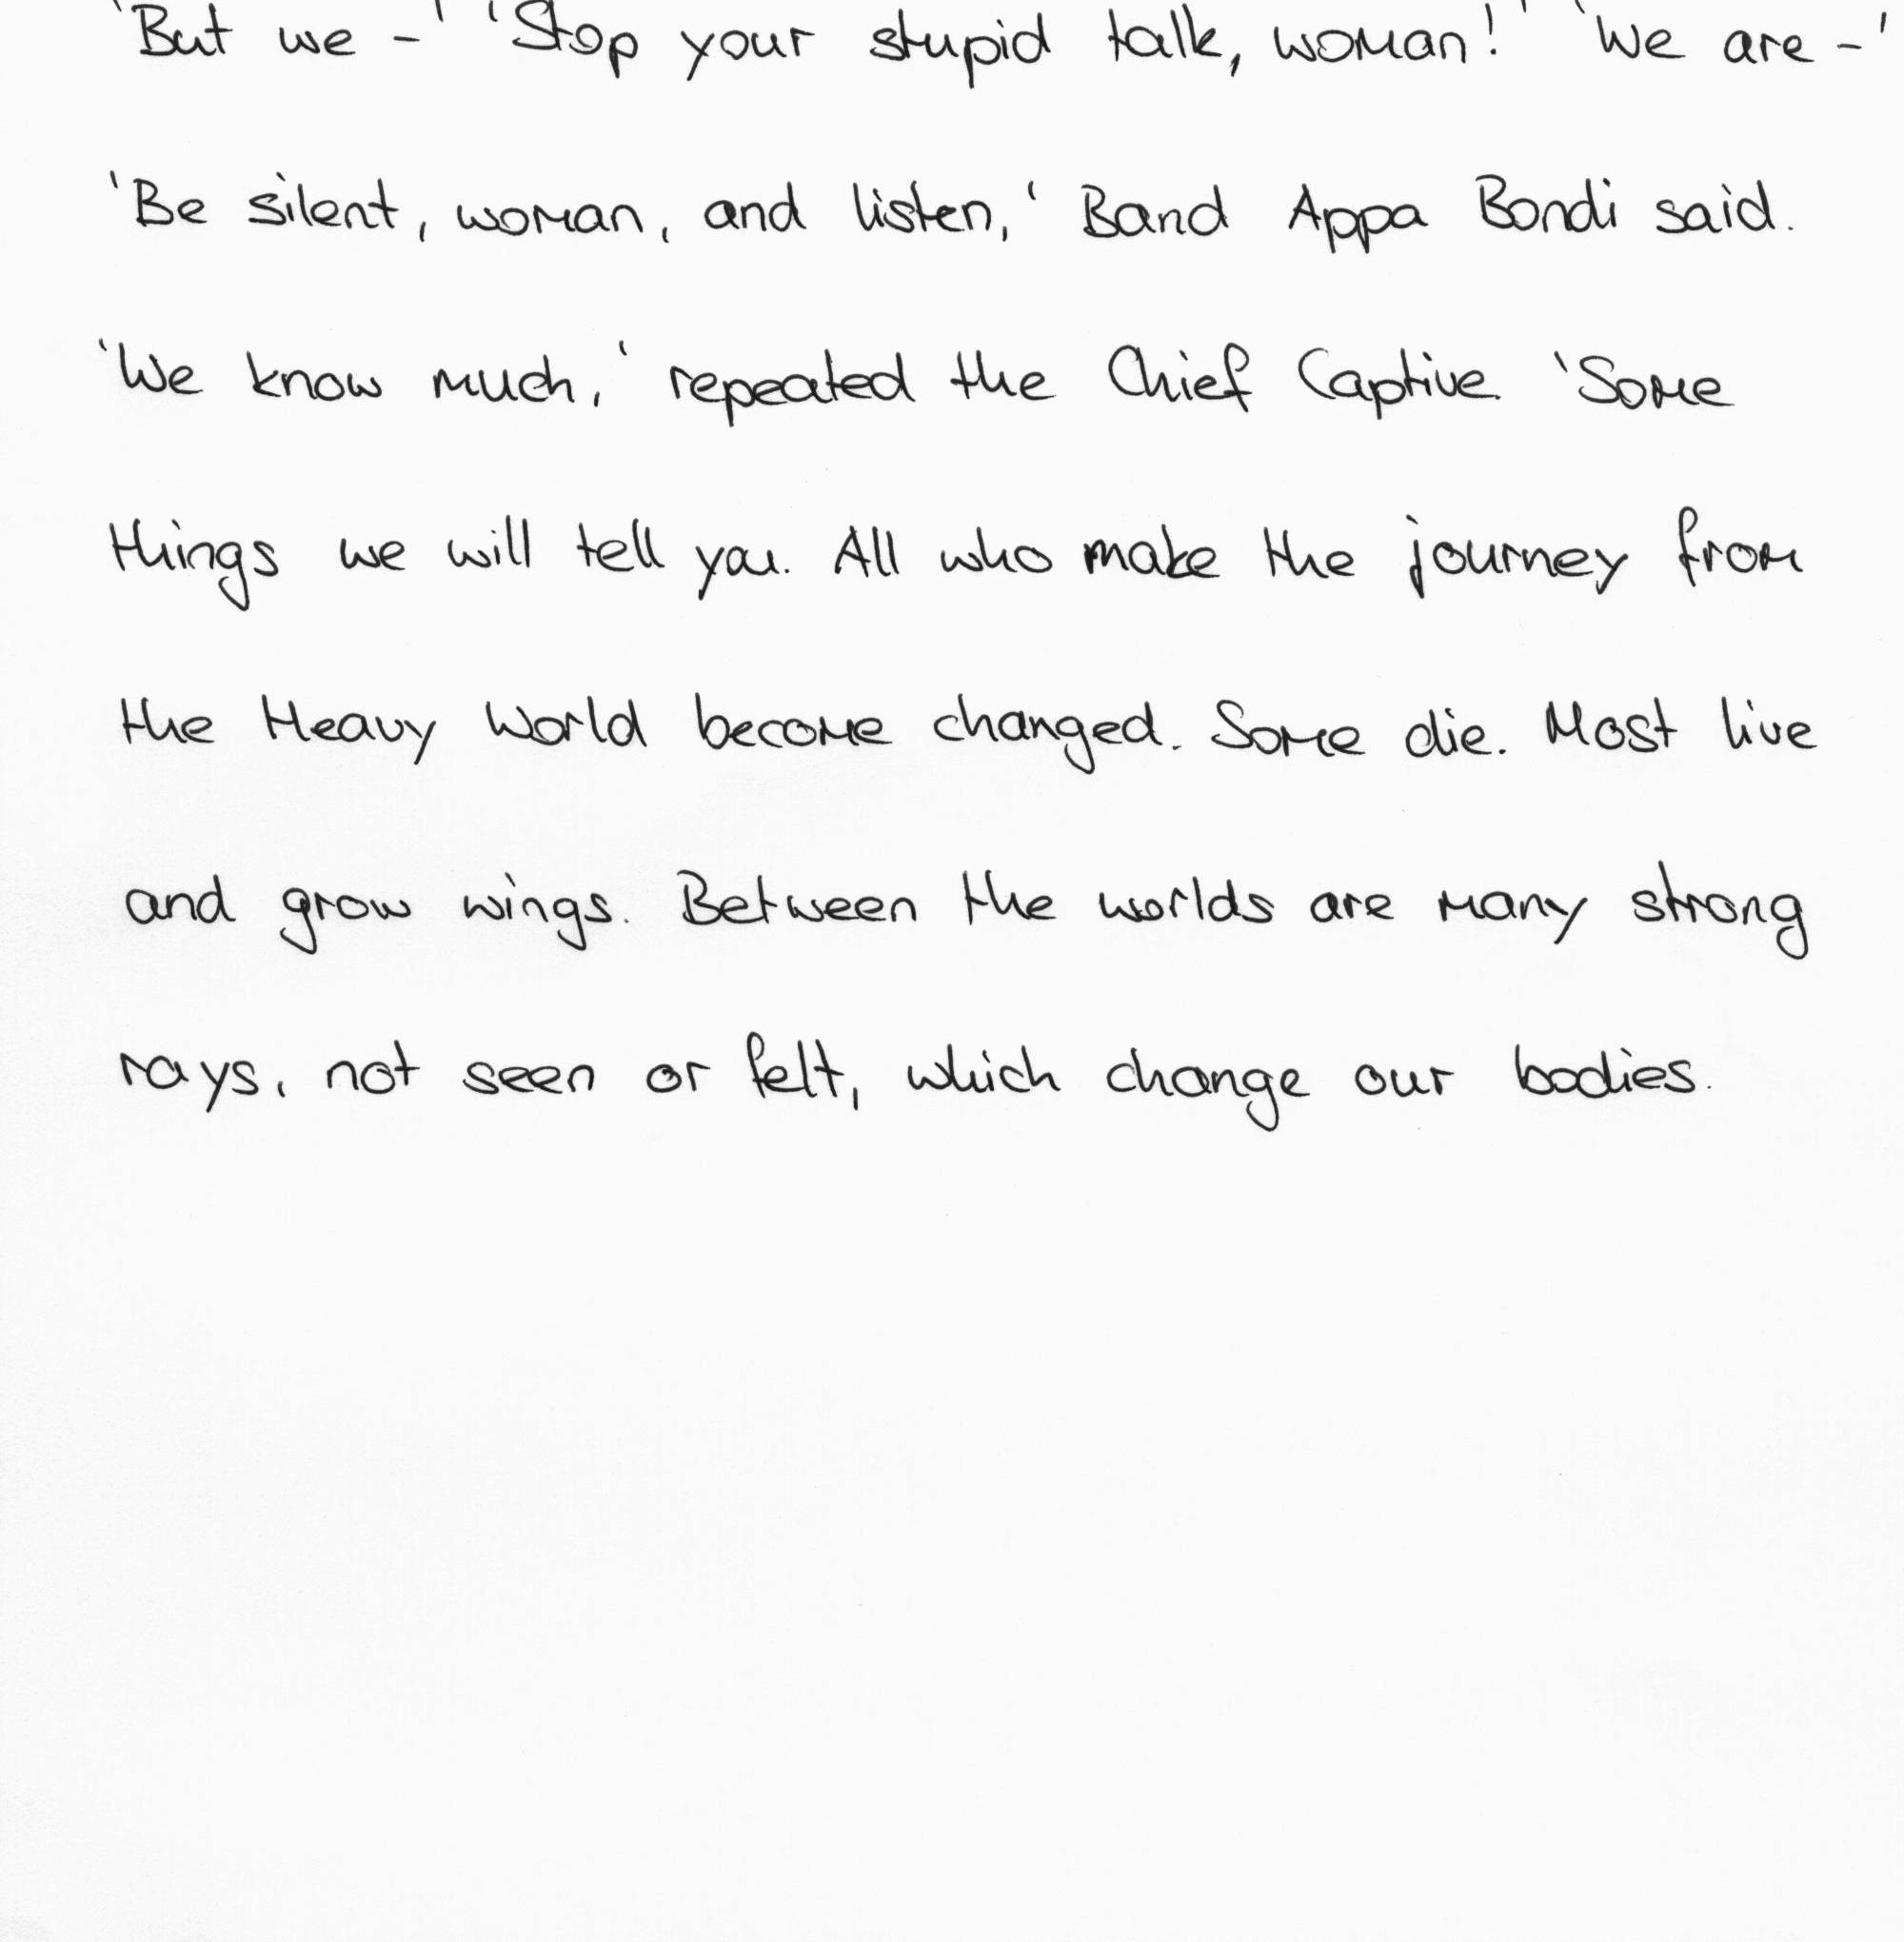 'But we -' 'Stop your stupid talk, woman!' 'We are -'
'Be silent, woman, and listen,' Band Appa Bondi said.
'We know much,' repeated the Chief Captive. 'Some
things we will tell you. All who make the journey from
the Heavy World become changed. Some die. Most live
and grow wings. Between the worlds are many strong
rays, not seen or felt, which change our bodies.